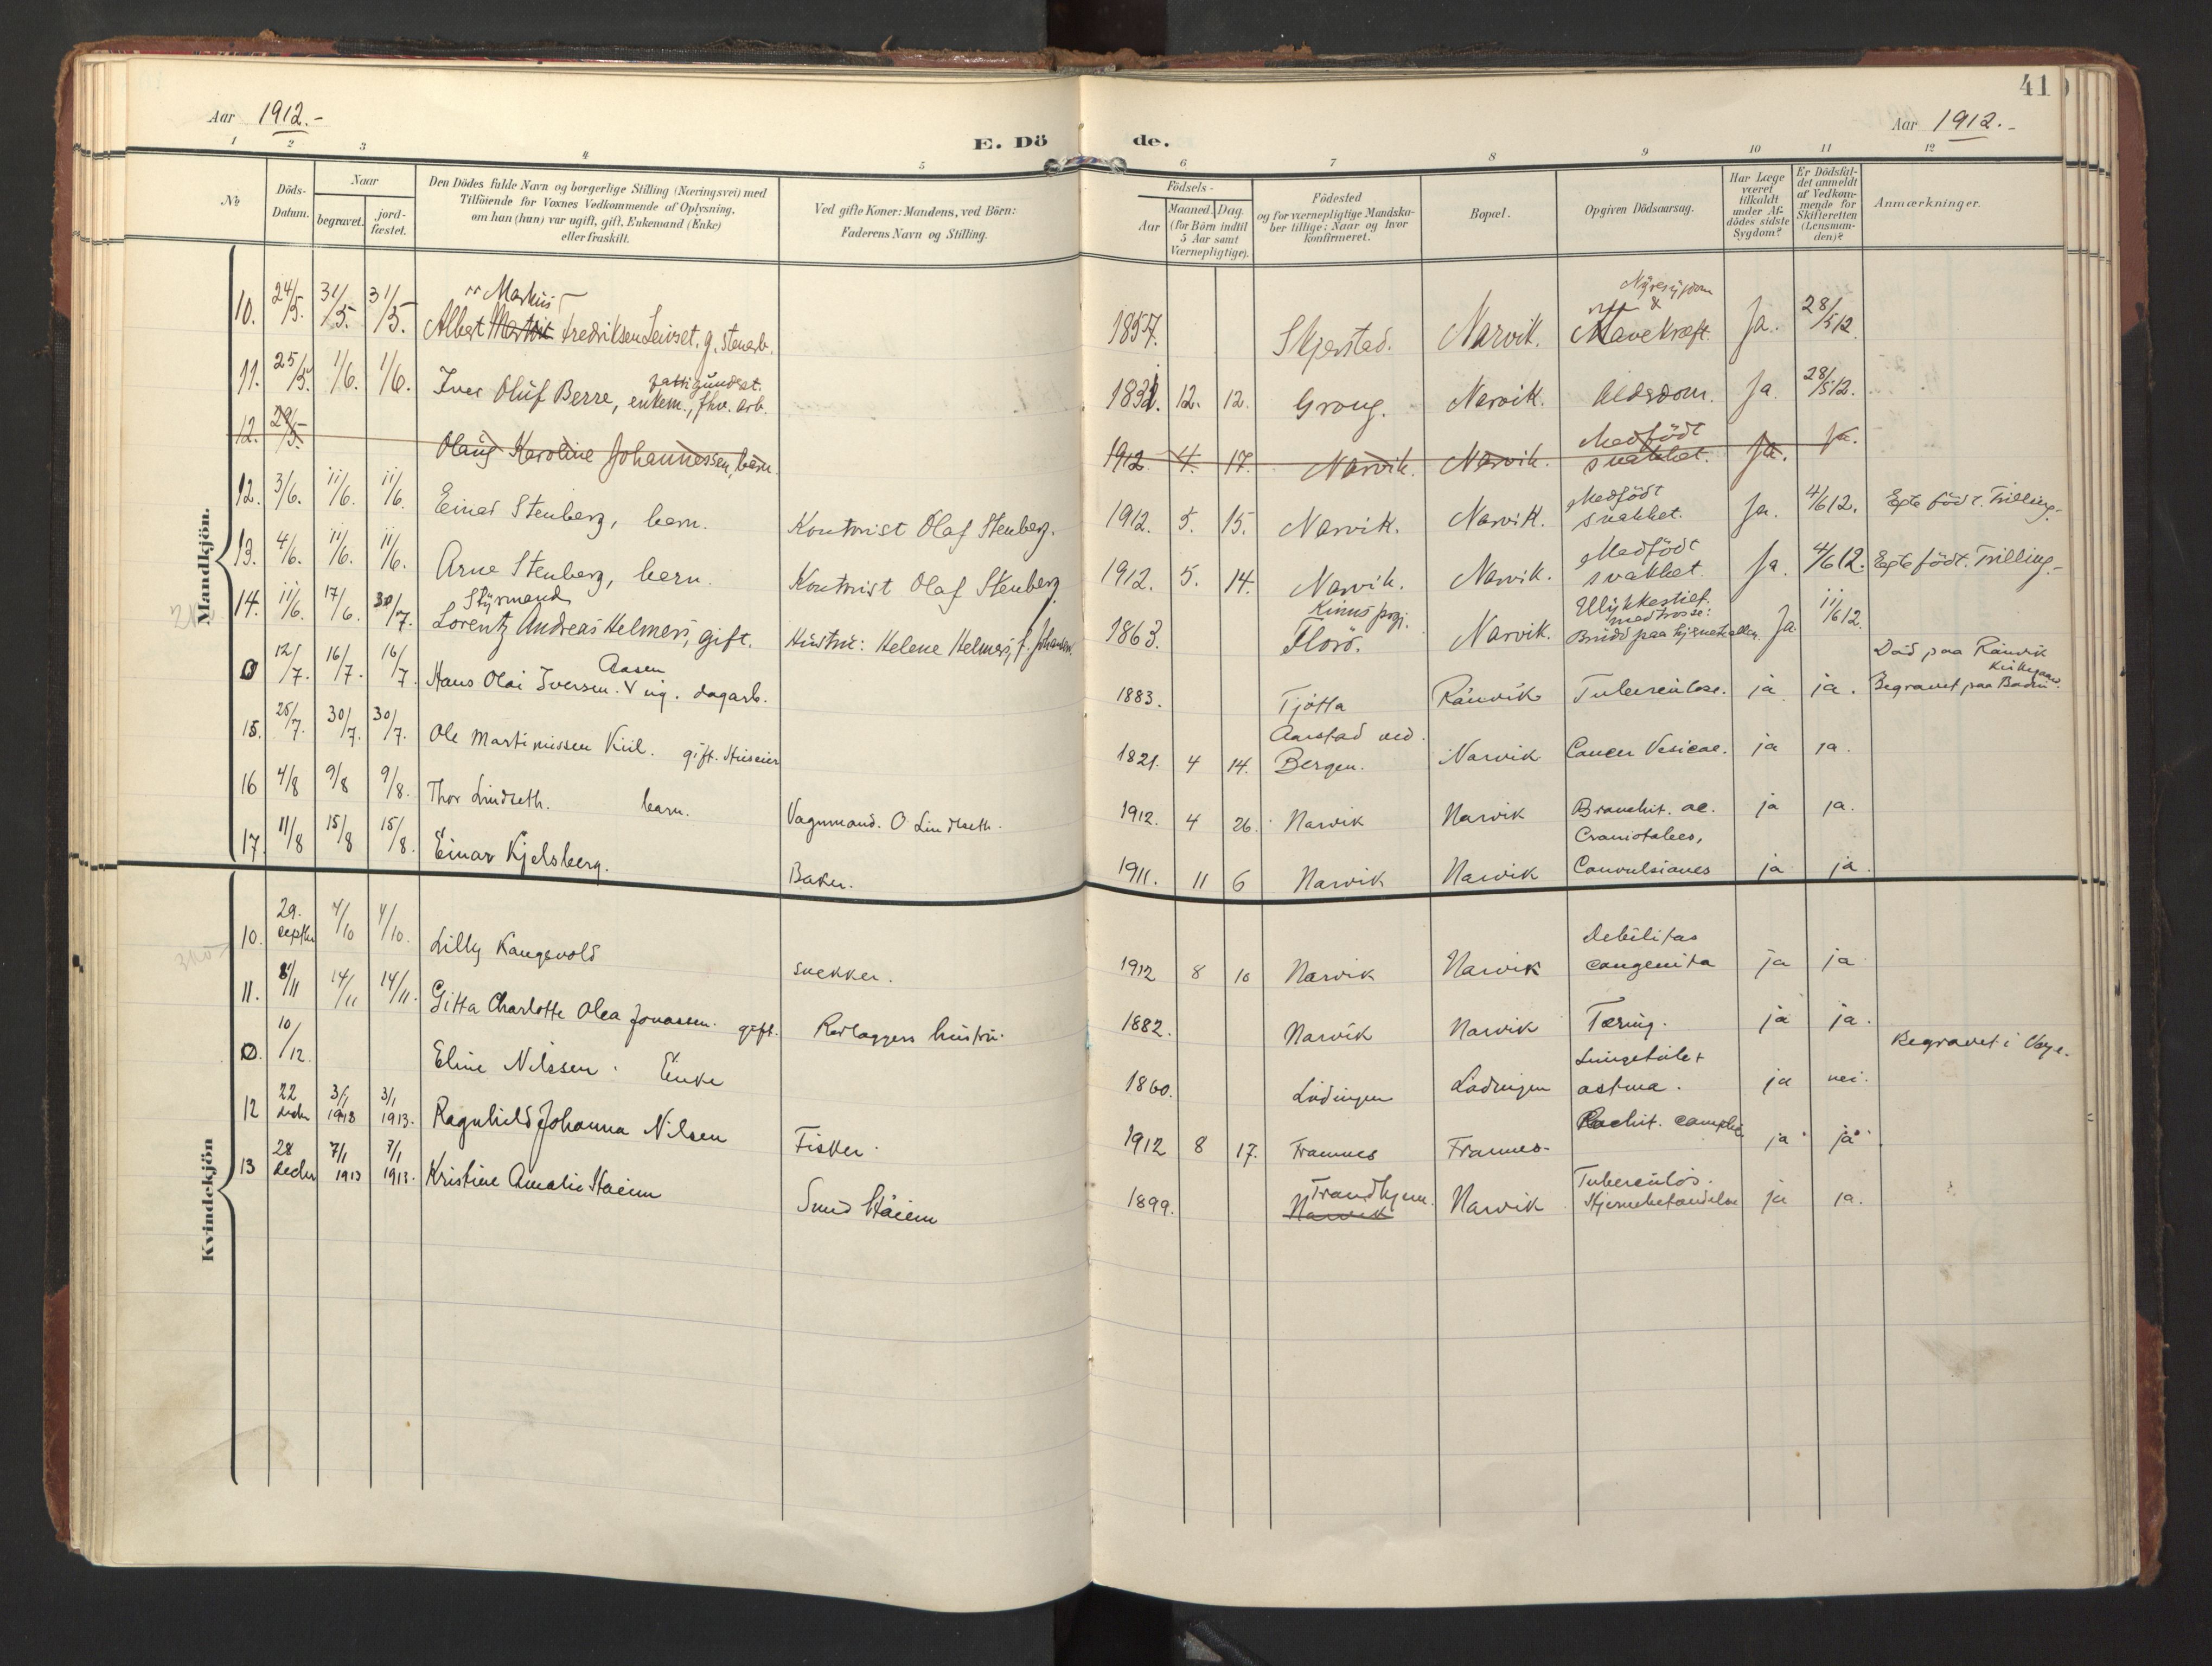 41
Aar 1912.-
Aar 1912.-
E. Dö
de.
1 2 3 4 5 6 7 8 9 10 11 12
No
Döds-Datum.
Naar
begravet.
jord-fæstet.
Den Dödes fulde Navn og borgerlige Stilling (Næringsvei) med
Tilföiende for Voxnes Vedkommende af Oplysning,
om han (hun) var ugift, gift, Enkemand (Enke)
eller fraskilt.
Ved gifte Koner: Mandens, ved Börn:
Faderens Navn og Stilling.
Födsels-
Aar
Maaned. Dag.
(for Börn indtil
5 Aar samt
Værnepligtige).
Födested
og for værnepligtige Mandska-
ber tillige: Naar og hvor
konfirmeret.
Bopæl.
Opgiven Dödsaarsag.
Har Læge
været
tilkaldt
under Af-
dödes sidste
Sygdom?
Er Dödsfal-
det anmeldt
af Vedkom-
mende for
Skifteretten
(Lensman-
den)?
Anmærkninger.
Mandkjön.
Markus
Nyresygdom
10. 24/5. 31/5. 31/5. Albert Martin Fredriksen Leivset, g. stenarb. 1857. Skjerstad. Narvik. & Mavekræft. Ja. 28/5 12.
fattigunderst.
11. 25/5. 1/6. 1/6. Iver Oluf Berre, enkem., fhv. arb. 1832. 12. 12. Grong. Narvik. Alderdom. Ja. 28/5 12.
12. 29/5 Olaug Karoline Johannessen, barn 1912 4. 17. Narvik. Narvik. Medfödt svakhet. Ja. Ja.
12. 3/6. 11/6. 11/6. Einar Stenberg, barn. Kontorist Olaf Stenberg. 1912. 5. 15. Narvik. Narvik. Medfödt svakhet. Ja. 4/6 12. Egte födt. Trilling.-
13. 4/6. 11/6. 11/6. Arne Stenberg, barn. Kontorist Olaf Stenberg. 1912. 5. 14. Narvik. Narvik. Medfödt svakhet. Ja. 4/6 12. Egte födt. Trilling.-
Styrmand
14. 11/6. 17/6. 30/7. Lorentz Andreas Helmers, gift. Hustru: Helene Helmers, f. Johansen. 1863. Kinns prgj. Florö. Narvik. Ulykkestilf. med trosse: Brudd paa hjerneskallen. Ja. 11/6 12.
Aasen
0 12/7. 16/7. 16/7. Hans Olai Iversen. V ug. dagarb. 1883. Tjötta Ranvik Tuberculose. ja ja. Död paa Ranvik Begravet paa Bodin Kirkegaard.
15. 25/7. 30/7. 30/7. Ole Martinussen Kiil. gift. Huseier 1821. 4 14. Aarstad ved Bergen. Narvik Cancer Vesicae. ja ja.
16 4/8 9/8 9/8. Thor Lindseth. barn. Vognmand. O Lindseth. 1912. 4 26. Narvik Narvik Bronchit. ac. ja ja.
17. 11/8 15/8 15/8. Einar Kjelsberg. Baker. 1911. 11 6 Narvik Narvik Craniotabes, Convulsiones ja ja.
Kvindekjön
10. 29. septbr 4/10 4/10. Lilly Kangevold snekker. 1912 8 10 Narvik Narvik Debilitas congenita ja ja
11. 8/11 14/11 14/11. Gitta Charlotte Olea Jonassen. gift. Rørlæggers hustru. 1882. Narvik Narvik Tæring. ja ja.
0. 10/12. Eline Nilssen. Enke 1860. Lödingen Lödingen astma. ja nei. Begravet i
12 22 decbr 3/1 1913 3/1 1913. Ragnhild Johanna Nilsen Fisker. 1912 8 17. Framnes Framnes. Rachit. ja ja.
13 28 decbr 7/1 1913 7/1 1913. Kristine Amalie Støeim Smed Støeim 1899. Trondhjem. Narvik Narvik Tuberculös. Hjernebetændelse ja ja.